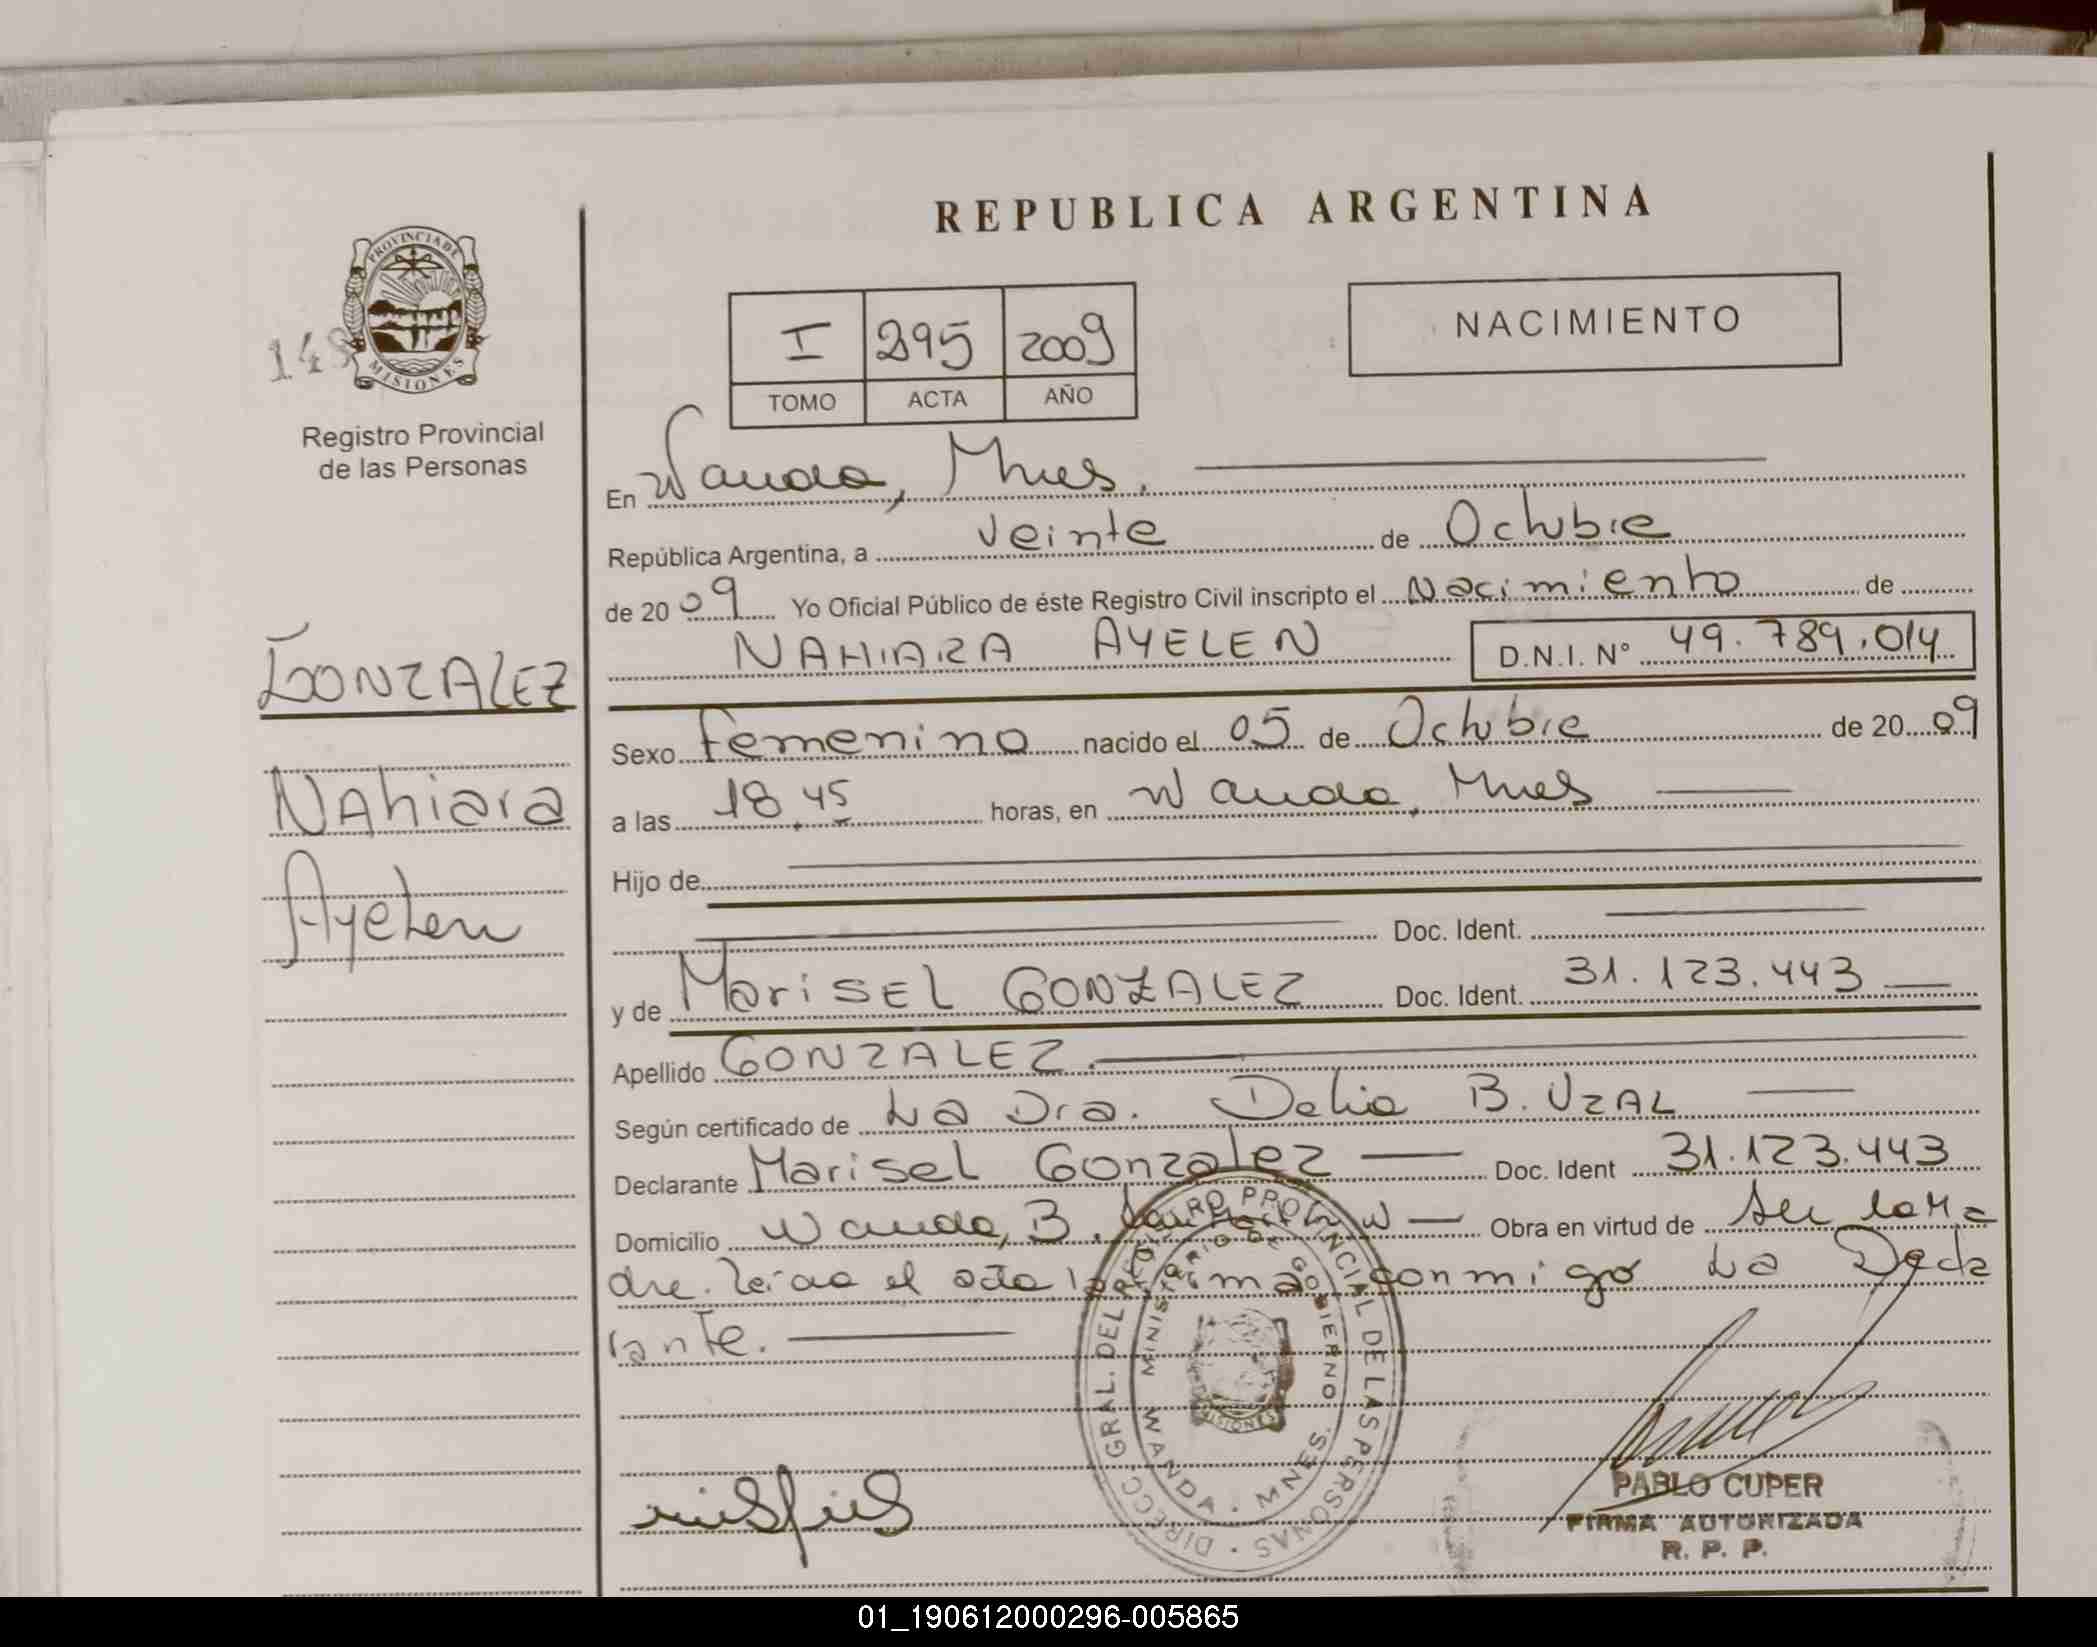 REPUBLICA ARGENTINA
PROVINCIA DE
MISIONES
148
Registro Provincial
de las Personas
I 295 2009
TOMO ACTA AÑO
NACIMIENTO
En Wanda, Mnes.
República Argentina, a veinte de Octubre
de 2009 Yo Oficial Público de éste Registro Civil inscripto el Nacimiento de
NAHIARA AYELEN D.N.I. Nº 49.789.014
GONZALEZ
Nahiara
Ayelen
Sexo Femenino nacido el 05 de Octubre de 2009
a las 18,45 horas, en Wanda, Mnes
Hijo de
Doc. Ident.
y de MARISEL GONZALEZ Doc. Ident. 31.123.443
Apellido GONZALEZ.
Según certificado de La Dra. Delia B. UZAL
Declarante Marisel Gonzalez Doc. Ident 31.123.443
Domicilio Wanda, B. San Martin Obra en virtud de ser la Ma
dre. leída el acta la firma conmigo La Decla
rante.
DIRECC. GRAL. DEL REGISTRO PROVINCIAL DE LAS PERSONAS
MINISTERIO DE GOBIERNO
WANDA - MNES.
MISIONES
PABLO CUPER
FIRMA AUTORIZADA
R. P. P.
01_190612000296-005865